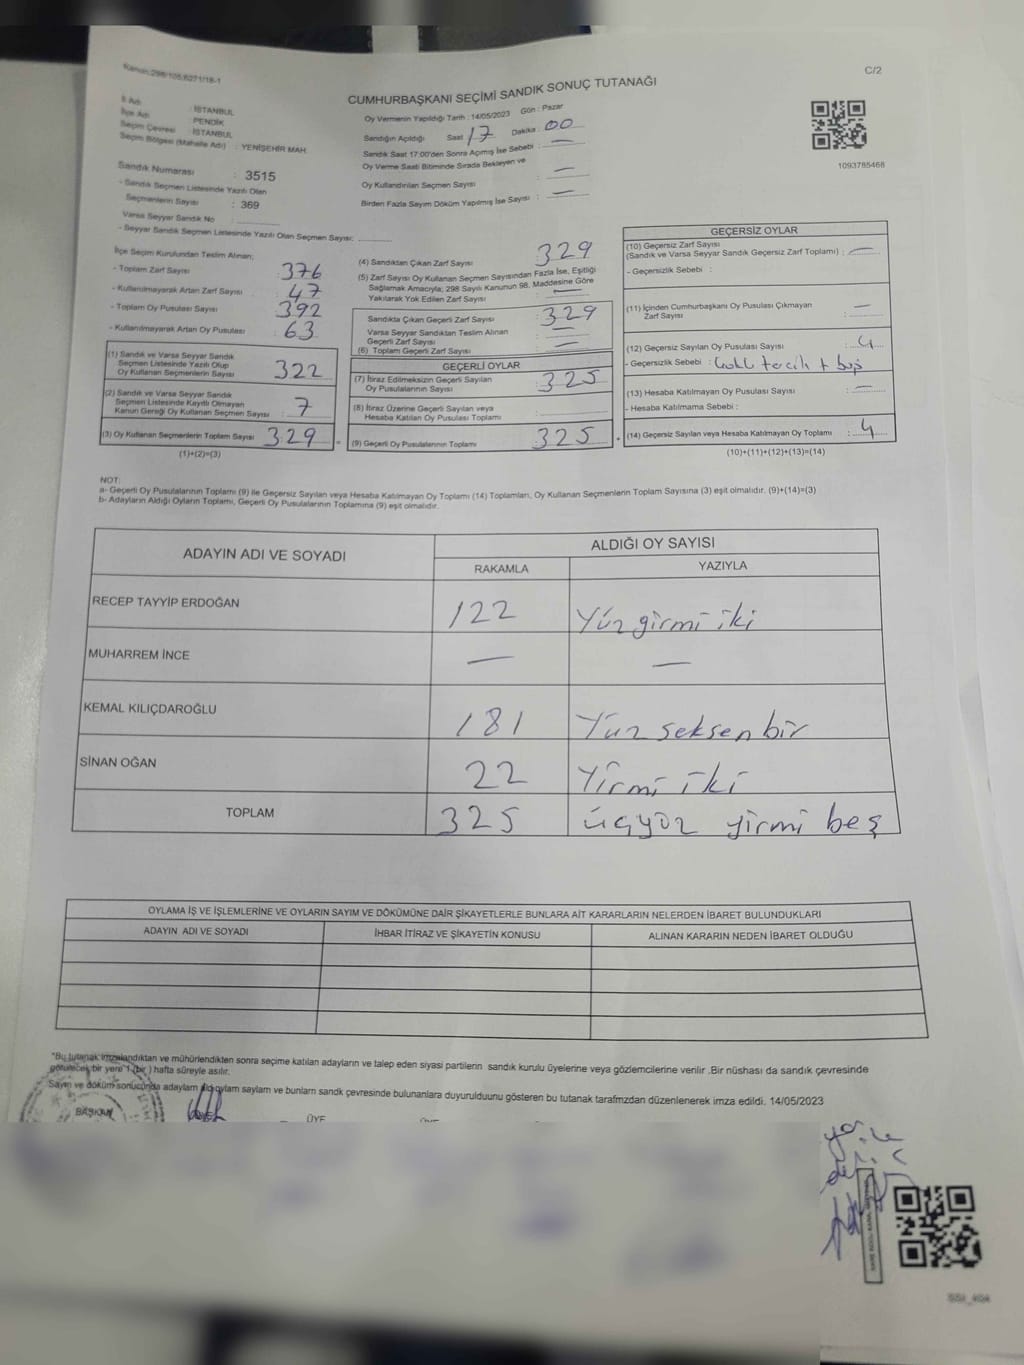 Kanun:298/105,6271/18-1
C/2
CUMHURBAŞKANI SEÇİMİ SANDIK SONUÇ TUTANAĞI
İl Adı : İSTANBUL
İlçe Adı : PENDİK
Seçim Çevresi : İSTANBUL
Seçim Bölgesi (Mahalle Adı) : YENİŞEHİR MAH.
Sandık Numarası : 3515
- Sandık Seçmen Listesinde Yazılı Olan
Seçmenlerin Sayısı : 369
Varsa Seyyar Sandık No :
- Seyyar Sandık Seçmen Listesinde Yazılı Olan Seçmen Sayısı:
Oy Vermenin Yapıldığı Tarih : 14/05/2023 Gün : Pazar
Sandığın Açıldığı Saat 17 Dakika : 00
Sandık Saat 17:00'den Sonra Açımış İse Sebebi : —
Oy Verme Saati Bitiminde Sırada Bekleyen ve
Oy Kullandırılan Seçmen Sayısı : —
Birden Fazla Sayım Döküm Yapılmış İse Sayısı : —
1093785468
İlçe Seçim Kurulundan Teslim Alınan;
- Toplam Zarf Sayısı : 376
- Kullanılmayarak Artan Zarf Sayısı : 47
- Toplam Oy Pusulası Sayısı : 392
- Kullanılmayarak Artan Oy Pusulası : 63
(1) Sandık ve Varsa Seyyar Sandık
Seçmen Listesinde Yazılı Olup
Oy Kullanan Seçmenlerin Sayısı : 322
(2) Sandık ve Varsa Seyyar Sandık
Seçmen Listesinde Kayıtlı Olmayan
Kanun Gereği Oy Kullanan Seçmen Sayısı : 7
(3) Oy Kullanan Seçmenlerin Toplam Sayısı : 329
(1)+(2)=(3)
(4) Sandıktan Çıkan Zarf Sayısı : 329
(5) Zarf Sayısı Oy Kullanan Seçmen Sayısından Fazla İse, Eşitliği
Sağlamak Amacıyla; 298 Sayılı Kanunun 98. Maddesine Göre
Yakılarak Yok Edilen Zarf Sayısı : —
Sandıkta Çıkan Geçerli Zarf Sayısı : 329
Varsa Seyyar Sandıktan Teslim Alınan
Geçerli Zarf Sayısı : —
(6) Toplam Geçerli Zarf Sayısı : —
GEÇERLİ OYLAR
(7) İtiraz Edilmeksizin Geçerli Sayılan
Oy Pusulalarının Sayısı : 325
(8) İtiraz Üzerine Geçerli Sayılan veya
Hesaba Katılan Oy Pusulası Toplamı :
(9) Geçerli Oy Pusulalarının Toplamı : 325
GEÇERSİZ OYLAR
(10) Geçersiz Zarf Sayısı
(Sandık ve Varsa Seyyar Sandık Geçersiz Zarf Toplamı) : —
- Geçersizlik Sebebi :
(11) İçinden Cumhurbaşkanı Oy Pusulası Çıkmayan
Zarf Sayısı : —
(12) Geçersiz Sayılan Oy Pusulası Sayısı : 4
- Geçersizlik Sebebi : tercih + boş
(13) Hesaba Katılmayan Oy Pusulası Sayısı : —
- Hesaba Katılmama Sebebi :
(14) Geçersiz Sayılan veya Hesaba Katılmayan Oy Toplamı : 4
(10)+(11)+(12)+(13)=(14)
NOT:
a- Geçerli Oy Pusulalarının Toplamı (9) ile Geçersiz Sayılan veya Hesaba Katılmayan Oy Toplamı (14) Toplamları, Oy Kullanan Seçmenlerin Toplam Sayısına (3) eşit olmalıdır. (9)+(14)=(3)
b- Adayların Aldığı Oyların Toplamı, Geçerli Oy Pusulalarının Toplamına (9) eşit olmalıdır.
ADAYIN ADI VE SOYADI
ALDIĞI OY SAYISI
RAKAMLA YAZIYLA
RECEP TAYYİP ERDOĞAN 122 Yüzyirmi iki
MUHARREM İNCE — —
KEMAL KILIÇDAROĞLU 181 Yüz seksen bir
SİNAN OĞAN 22 Yirmi iki
TOPLAM 325 üçyüz yirmi beş
OYLAMA İŞ VE İŞLEMLERİNE VE OYLARIN SAYIM VE DÖKÜMÜNE DAİR ŞİKAYETLERLE BUNLARA AİT KARARLARIN NELERDEN İBARET BULUNDUKLARI
ADAYIN ADI VE SOYADI İHBAR İTİRAZ VE ŞİKAYETİN KONUSU ALINAN KARARIN NEDEN İBARET OLDUĞU
*Bu tutanak imzalandıktan ve mühürlendikten sonra seçime katılan adayların ve talep eden siyasi partilerin sandık kurulu üyelerine ve/veya gözlemcilerine verilir. Bir nüshası da sandık çevresinde
görülecek bir yere 1 (bir) hafta süreyle asılır.
Sayım ve döküm sonucunda adayların aldığı oyların sayıları ve bunların sandık çevresinde bulunanlara duyurulduunu gösteren bu tutanak tarafımızdan düzenlenerek imza edildi. 14/05/2023
BAŞKAN ÜYE ÜYE ÜYE